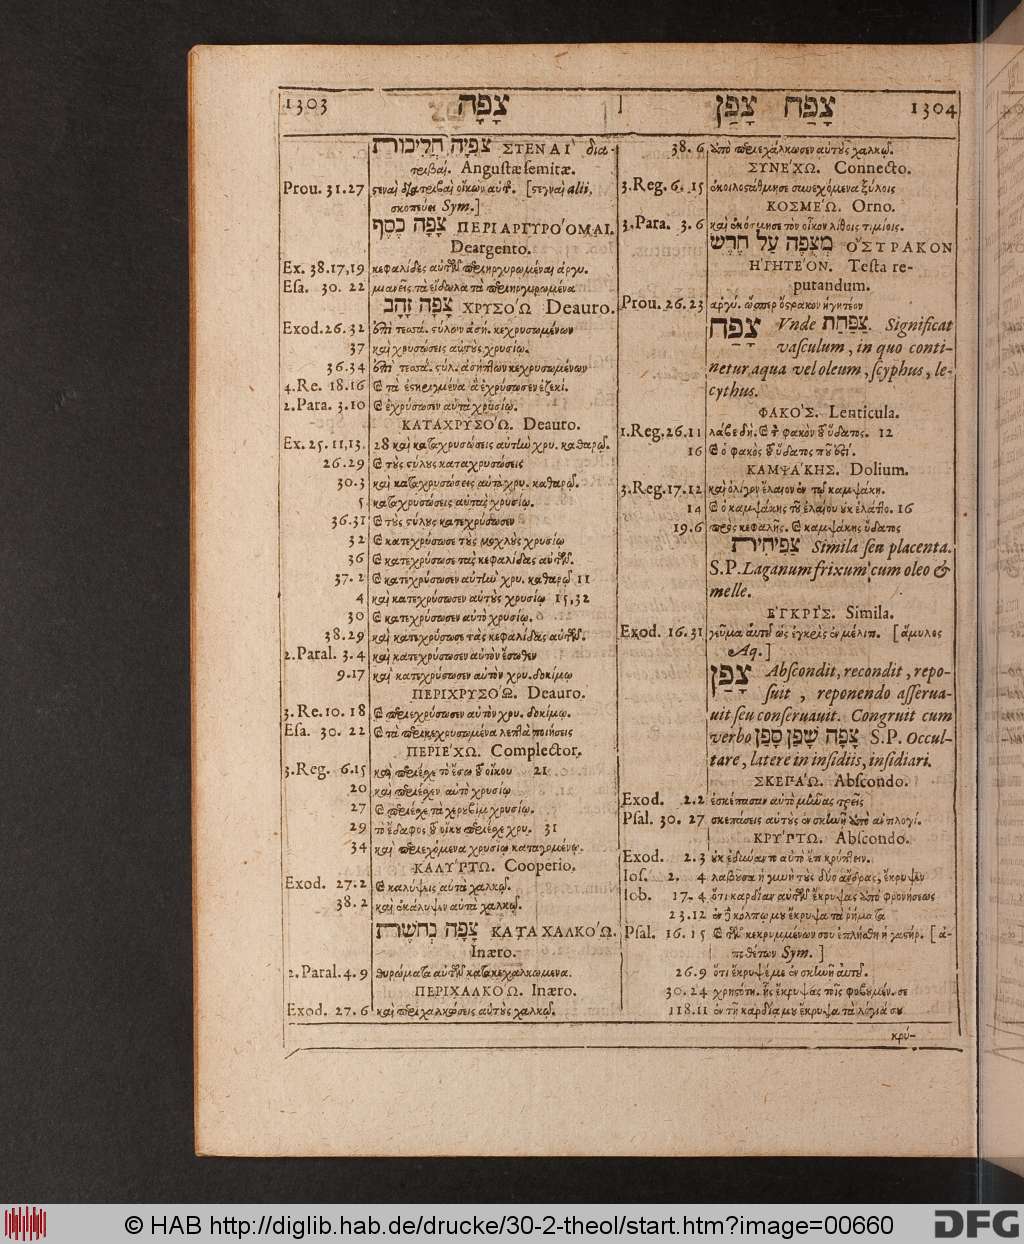 1303 צָפָה צָפַח צָפַן 1304
צפיה הליכות ΣΤΕΝΑΙ δια-
τριβαί. Angustæ semitæ.
Prou. 31.27 στεναὶ διατριβαὶ οἴκων αὐτ. [στεγναὶ alii,
σκοπεύει Sym.]
צָפָה כֶסֶף ΠΕΡΙΑΡΓΥΡΟΌΜΑΙ.
Deargento.
Ex. 38.17,19 κεφαλίδες αὐτῶν περιηργυρωμέναι ἀργυ.
Esa. 30. 22 μιανεῖς τὰ εἴδωλα τὰ περιηργυρωμένα
צָפָה זָהָב ΧΡΥΣΌΩ Deauro.
Exod. 26.32 ἐπὶ τεσσά. στύλων ἀσή. κεχρυσωμένων
37 καὶ χρυσώσεις αὐτοὺς χρυσίῳ.
36.34 ἐπὶ τεσσά. στύλ. ἀσήπτων κεχρυσωμένων
4. Re. 18.16 καὶ τὰ ἐστηριγμένα ἃ ἐχρύσωσεν ἐζεκί.
2. Para. 3.10 καὶ ἐχρύσωσεν αὐτὰ χρυσίῳ.
ΚΑΤΑΧΡΥΣΌΩ. Deauro.
Ex. 25.11,13. 28 καὶ καταχρυσώσεις αὐτὴν χρυ. καθαρῷ.
26.29 καὶ τοὺς στύλους καταχρυσώσεις
30.3 καὶ καταχρυσώσεις αὐτὰ χρυ. καθαρῷ.
5 καταχρυσώσεις αὐτὰς χρυσίῳ.
36.31 καὶ τοὺς στύλους κατεχρύσωσεν
32 καὶ κατεχρύσωσε τοὺς μοχλοὺς χρυσίῳ
36 καὶ κατεχρύσωσε τὰς κεφαλίδας αὐτῶν.
37.2 καὶ κατεχρύσωσεν αὐτὴν χρυ. καθαρῷ 11
4 καὶ κατεχρύσωσεν αὐτοὺς χρυσίῳ 15,32
30 καὶ κατεχρύσωσεν αὐτὸ χρυσίῳ.
38.29 καὶ κατεχρύσωσε τὰς κεφαλίδας αὐτῶν.
2. Paral. 3.4 καὶ κατεχρύσωσεν αὐτὸν ἔσωθεν
9.17 καὶ κατεχρύσωσεν αὐτὸν χρυ. δοκίμῳ
ΠΕΡΙΧΡΥΣΟΏ. Deauro.
3. Re. 10. 18 καὶ περιεχρύσωσεν αὐτὸν χρυ. δοκίμῳ.
Esa. 30. 22 καὶ τὰ περικεχρυσωμένα λεπτὰ ποιήσεις
ΠΕΡΙΈΧΩ. Complector.
3. Reg. 6.15 καὶ περιέσχε τὸ ἔσω τοῦ οἴκου 21
20 καὶ περιέσχεν αὐτὸ χρυσίῳ
27 καὶ περιέσχε τὰ χερουβὶμ χρυσίῳ.
29 τὸ ἔδαφος τοῦ οἴκου περιέσχε χρυ. 31
34 καὶ περιεχόμενα χρυσίῳ καταγομένῳ.
ΚΑΛΎΠΤΩ. Cooperio.
Exod. 27.2 καὶ καλύψεις αὐτὰ χαλκῷ.
38.2 καὶ ἐκάλυψεν αὐτὰ χαλκῷ.
צָפָה נְחֹשֶׁת ΚΑΤΑΧΑΛΚΌΩ.
Inæro.
2. Paral. 4. 9 θυρώματα αὐτῶν κατακεχαλκωμένα.
ΠΕΡΙΧΑΛΚΌΩ. Inæro.
Exod. 27.6 καὶ περιχαλκώσεις αὐτοὺς χαλκῷ.
38.6 καὶ περιεχάλκωσεν αὐτοὺς χαλκῷ.
ΣΥΝΈΧΩ. Connecto.
3. Reg. 6. 15 ἐκοιλοστάθμησε συνεχόμενα ξύλοις
ΚΟΣΜΈΩ. Orno.
3. Para. 3.6 καὶ ἐκόσμησε τὸν οἶκον λίθοις τιμίοις.
מְצֻפֶּה עַל חֶרֶשׂ ΌΣΤΡΑΚΟΝ
ἩΓΗΤΈΟΝ. Testa re-
putandum.
Prou. 26.23 ἀργύ. ὥσπερ ὄστρακον ἡγητέον
צָפַח Vnde צַפַּחַת. Significat
vasculum, in quo conti-
netur aqua vel oleum, scyphus, le-
cythus.
ΦΑΚΌΣ. Lenticula.
1. Reg. 26.11 λάβε δὴ. καὶ τὸν φακὸν τοῦ ὕδατος. 12
16 καὶ ὁ φακὸς τοῦ ὕδατος ποῦ ἐστί.
ΚΑΜΨΆΚΗΣ. Dolium.
3. Reg. 17.12 καὶ ὀλίγον ἔλαιον ἐν τῷ καμψάκῃ.
14 καὶ ὁ καμψάκης τοῦ ἐλαίου οὐκ ἐλάττο. 16
19.6 πρὸς κεφαλῆς. καὶ καμψάκης ὕδατος
צַפִּיחִית Simila seu placenta.
S.P. Laganum frixum cum oleo &
melle.
ἘΓΚΡῚΣ. Simila.
Exod. 16.31 γεῦμα αὐτοῦ ὡς ἐγκρὶς ἐν μέλιτι. [ἄμυλος
Aq.]
צָפַן Abscondit, recondit, repo-
suit, reponendo asserua-
uit seu conseruauit. Congruit cum
verbo צָפָה שָׁפַן סָפַן S.P. Occul-
tare, latere in insidiis, insidiari.
ΣΚΕΠΆΩ. Abscondo.
Exod. 2.2 ἐσκέπασαν αὐτὸ μῆνας τρεῖς
Psal. 30. 27 σκεπάσεις αὐτοὺς ἐν σκηνῇ ἀπὸ ἀντιλογί.
ΚΡΎΠΤΩ. Abscondo.
Exod. 2.3 οὐκ ἐδύναντο αὐτὸ ἔτι κρύπτειν.
Ios. 2. 4 λαβοῦσα ἡ γυνὴ τοὺς δύο ἄνδρας, ἔκρυψεν
Iob. 17.4 ὅτι καρδίαν αὐτῶν ἔκρυψας ἀπὸ φρονήσεως
23.12 ἐν τῷ κόλπῳ μου ἔκρυψα τὰ ῥήματα
Psal. 16. 15 καὶ τῶν κεκρυμμένων σου ἐπλήσθη ἡ γαστήρ. [ἀ-
ποθέτων Sym.]
26.9 ὅτι ἔκρυψέ με ἐν σκηνῇ αὐτοῦ.
30.24 χρηστότη. ἧς ἔκρυψας τοῖς φοβουμέν. σε
118.11 ἐν τῇ καρδίᾳ μου ἔκρυψα τὰ λόγιά σου
κρύ-
© HAB http://diglib.hab.de/drucke/30-2-theol/start.htm?image=00660
DFG